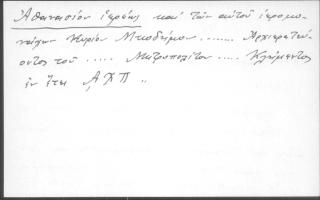 Ἀθανασίου ἱερέως καὶ τῶν αὐτοῦ ἱερομο-
νάχων Κυρίου Νικοδήμου ....... Ἀρχιερατεύ-
οντος τοῦ ..... Μητροπολίτου ..... Κλήμεντος
ἐν ἔτει ͵ΑΧΠ ..